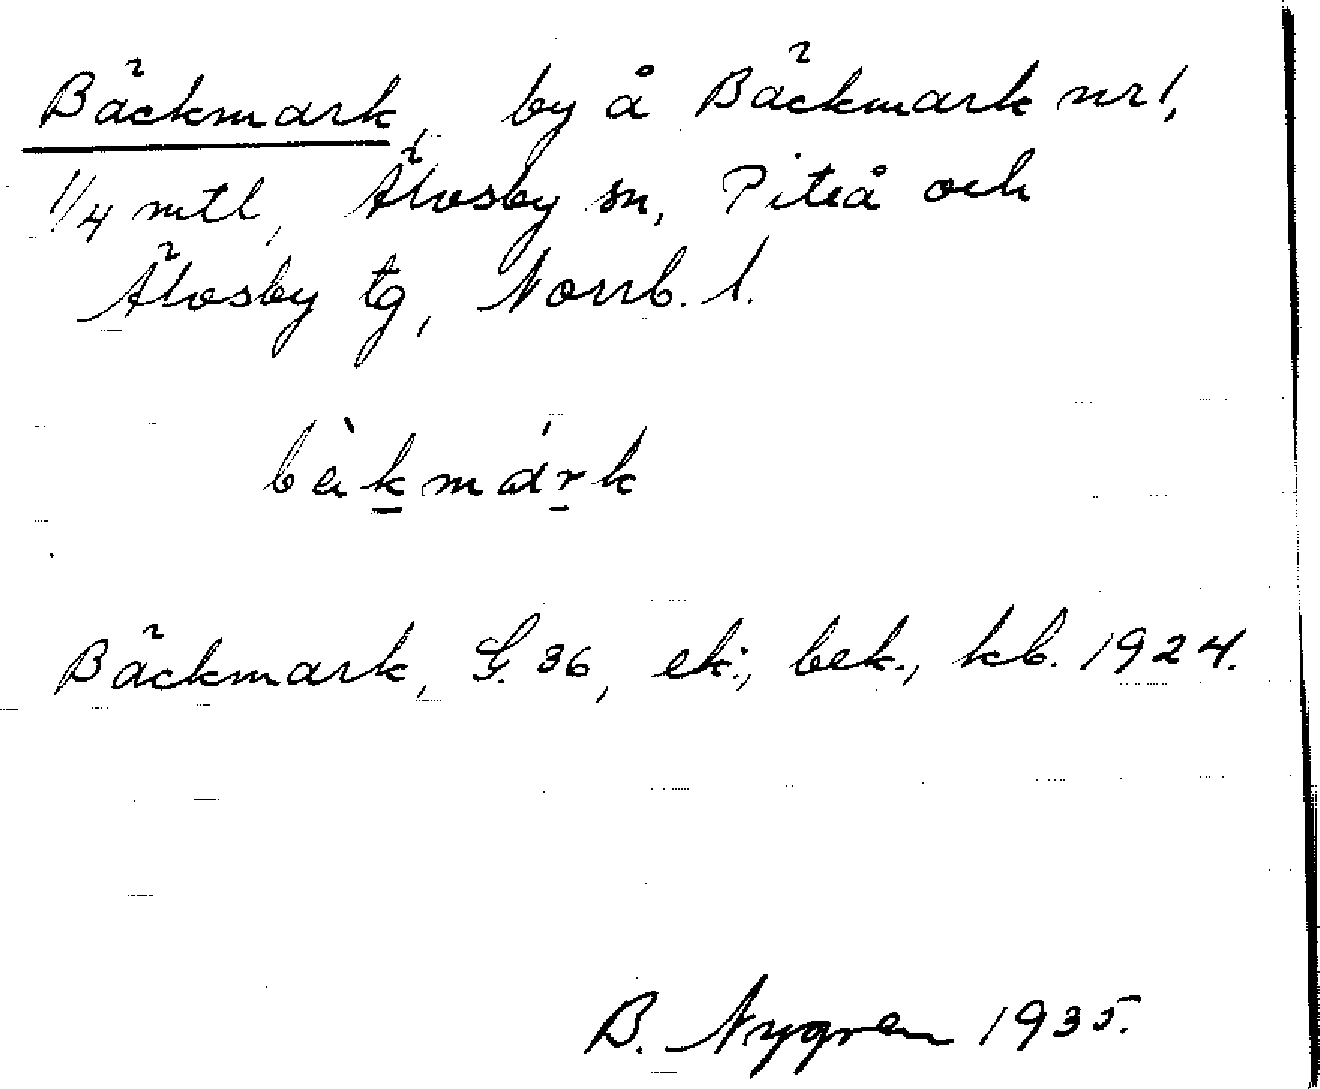 Bäckmark, by å Bäckmark nr 1,
1/4 mtl, Älvsby sn, Piteå och
Älvsby tg, Norrb. l.
bä̀kmárk
Bäckmark, G. 36, ek., bek., kb. 1924.
B. Nygren 1935.